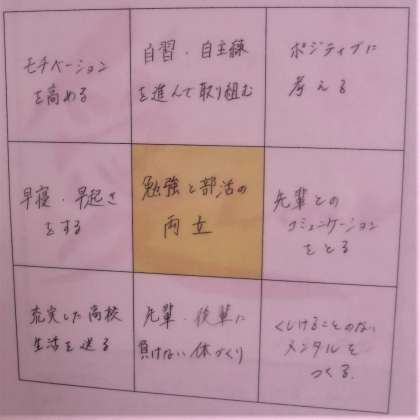 モチベーション
を高める
自習・自主練
を進んで取り組む
ポジティブに
考える
早寝・早起き
をする
勉強と部活の
両立
先輩との
コミュニケーション
をとる
充実した高校
生活を送る
先輩・後輩に
負けない体づくり
くじけることのない
メンタルを
つくる。